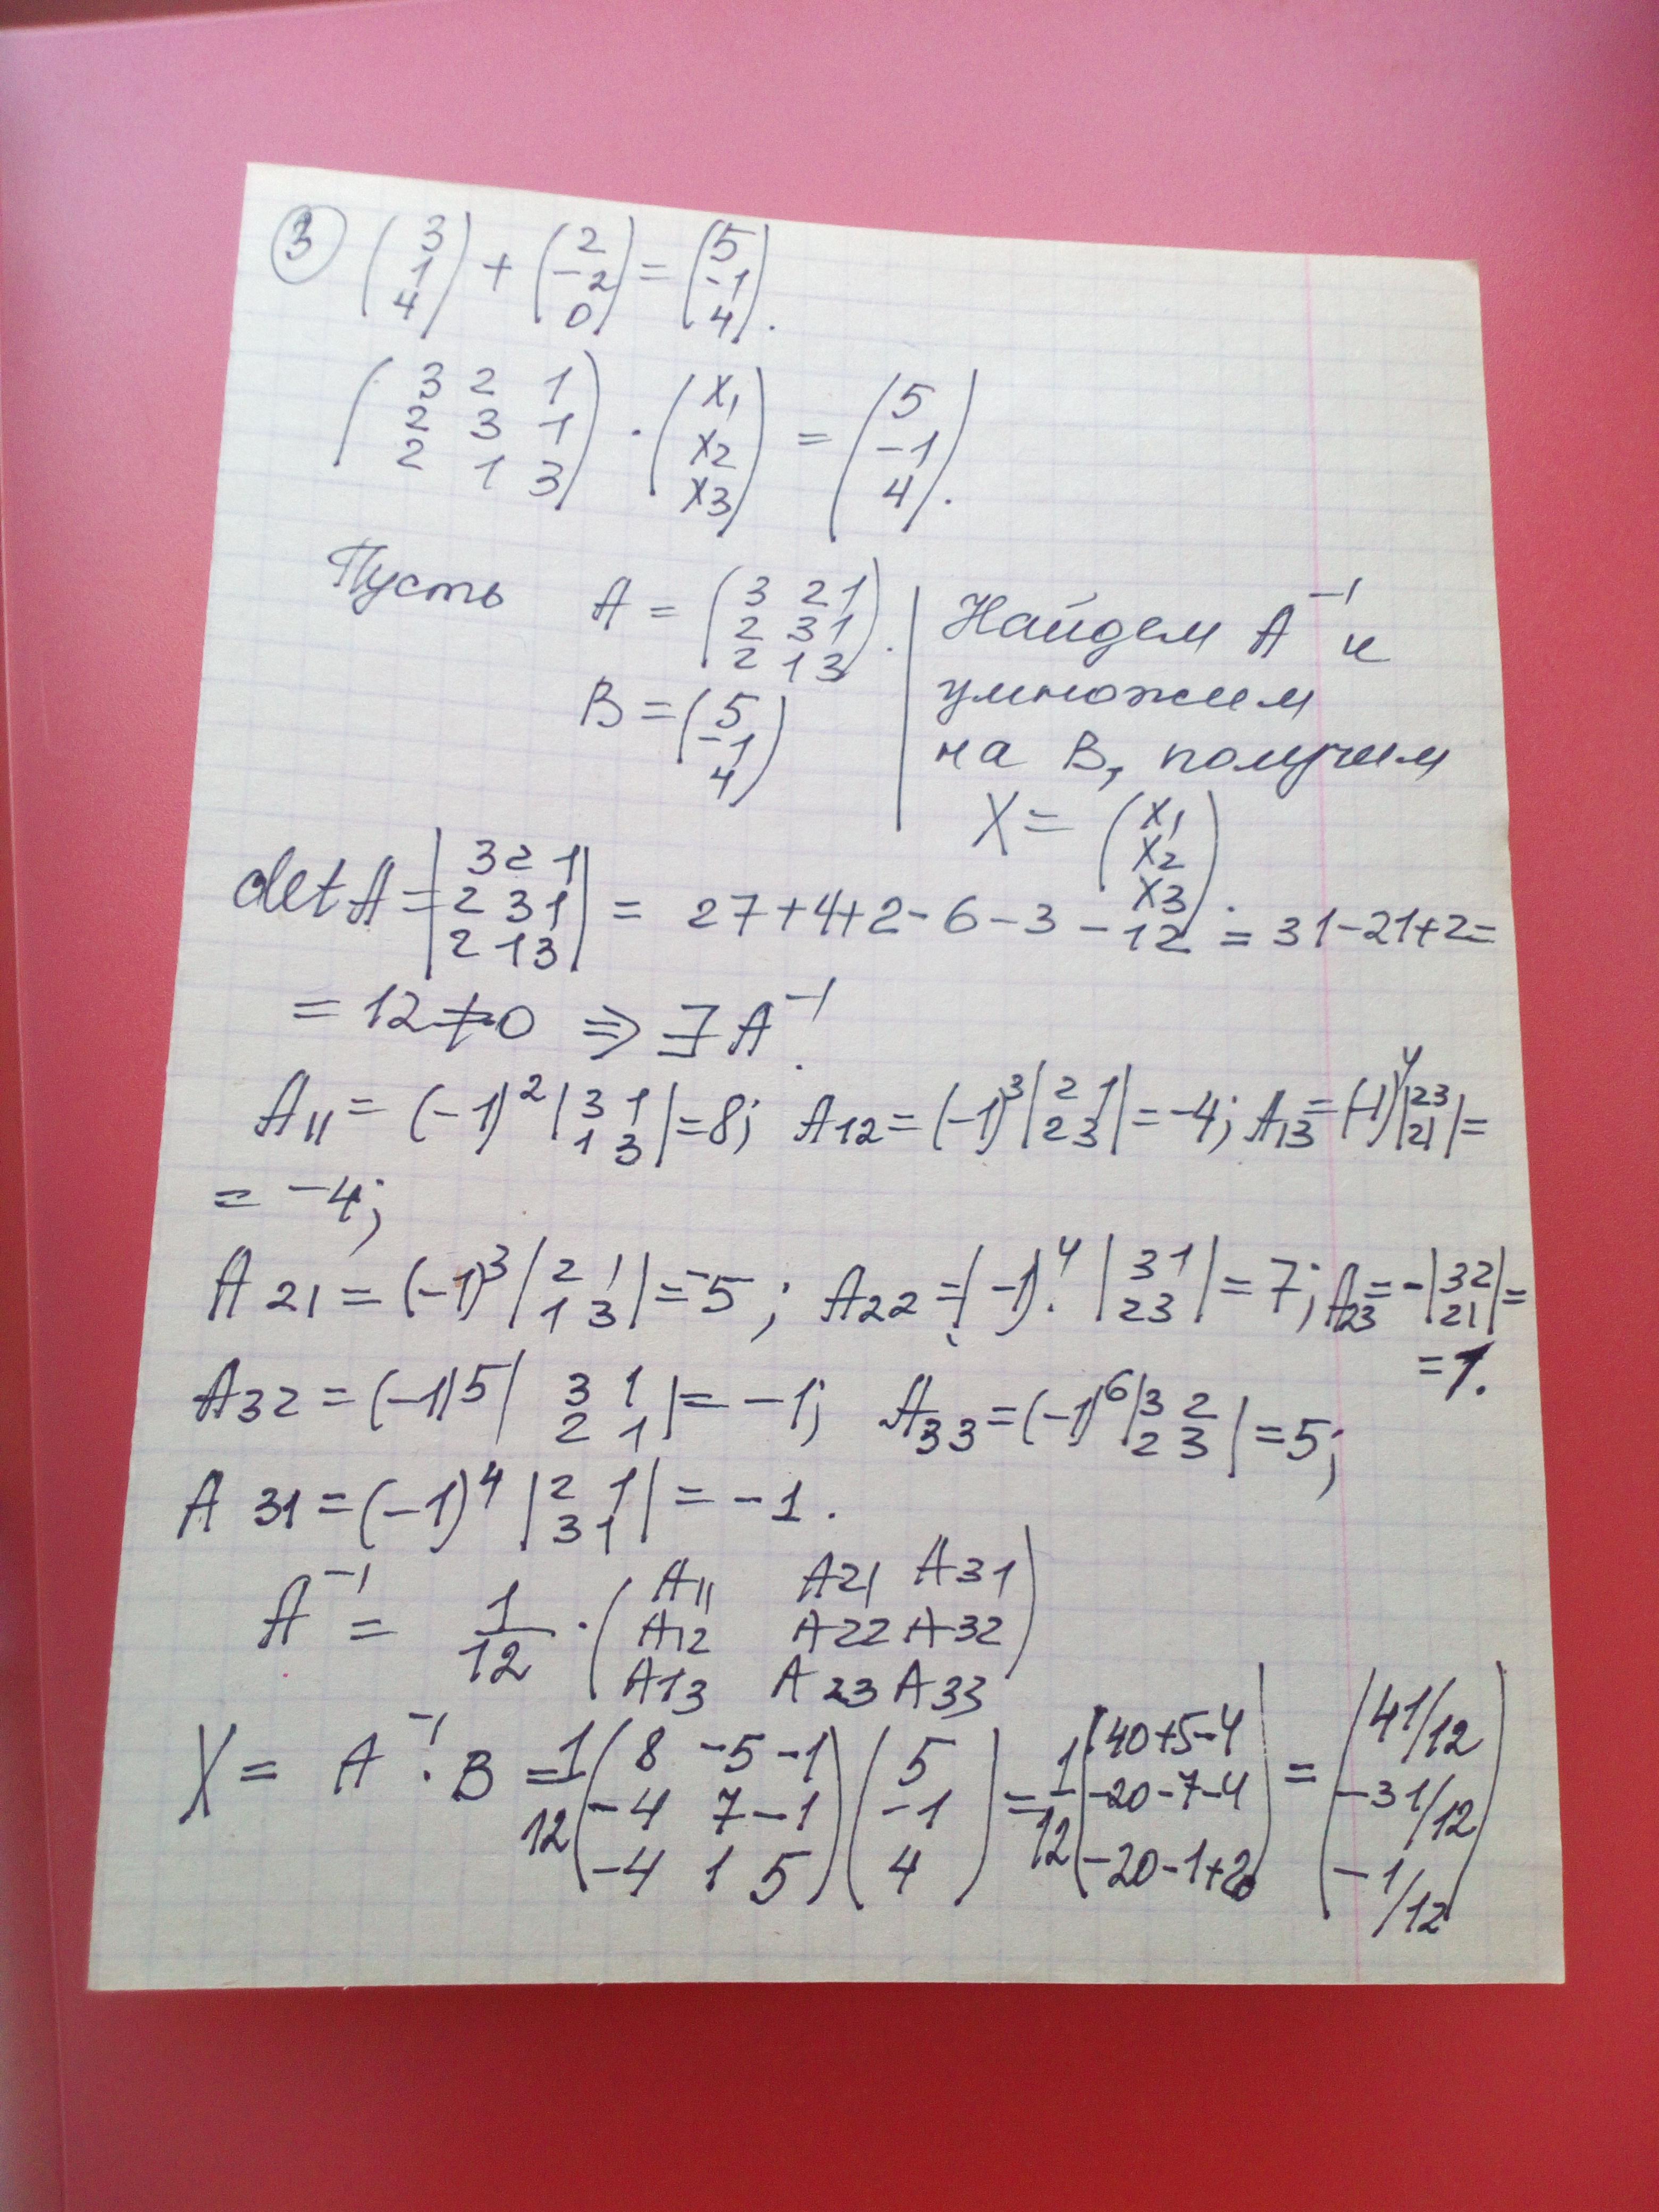 ③ (3 1 4) + (2 -2 0) = (5 -1 4).
(3 2 1
2 3 1
2 1 3) · (x1 x2 x3) = (5 -1 4).
Пусть A = (3 2 1
2 3 1
2 1 3).
B = (5 -1 4)
Найдем A⁻¹ и
умножим
на B, получим
X = (x1 x2 x3).
det A = |3 2 1
2 3 1
2 1 3| = 27+4+2-6-3-12 = 31-21+2=
= 12≠0 ⇒ ∃ A⁻¹.
A11 = (-1)² |3 1
1 3| = 8; A12 = (-1)³ |2 1
2 3| = -4; A13 = (-1)⁴ |2 3
2 1| =
= -4;
A21 = (-1)³ |2 1
1 3| = -5; A22 = (-1)⁴ · |3 1
2 3| = 7; A23 = -|3 2
2 1| =
= 1.
A32 = (-1)5 |3 1
2 1| = -1; A33 = (-1)⁶ |3 2
2 3| = 5;
A31 = (-1)⁴ |2 1
3 1| = -1.
A⁻¹ = 1/12 · (A11 A21 A31
A12 A22 A32
A13 A23 A33)
X = A⁻¹ · B = 1/12 (8 -5 -1
-4 7 -1
-4 1 5) (5 -1 4) = 1/12 (40+5-4
-20-7-4
-20-1+20) = (41/12
-31/12
-1/12)